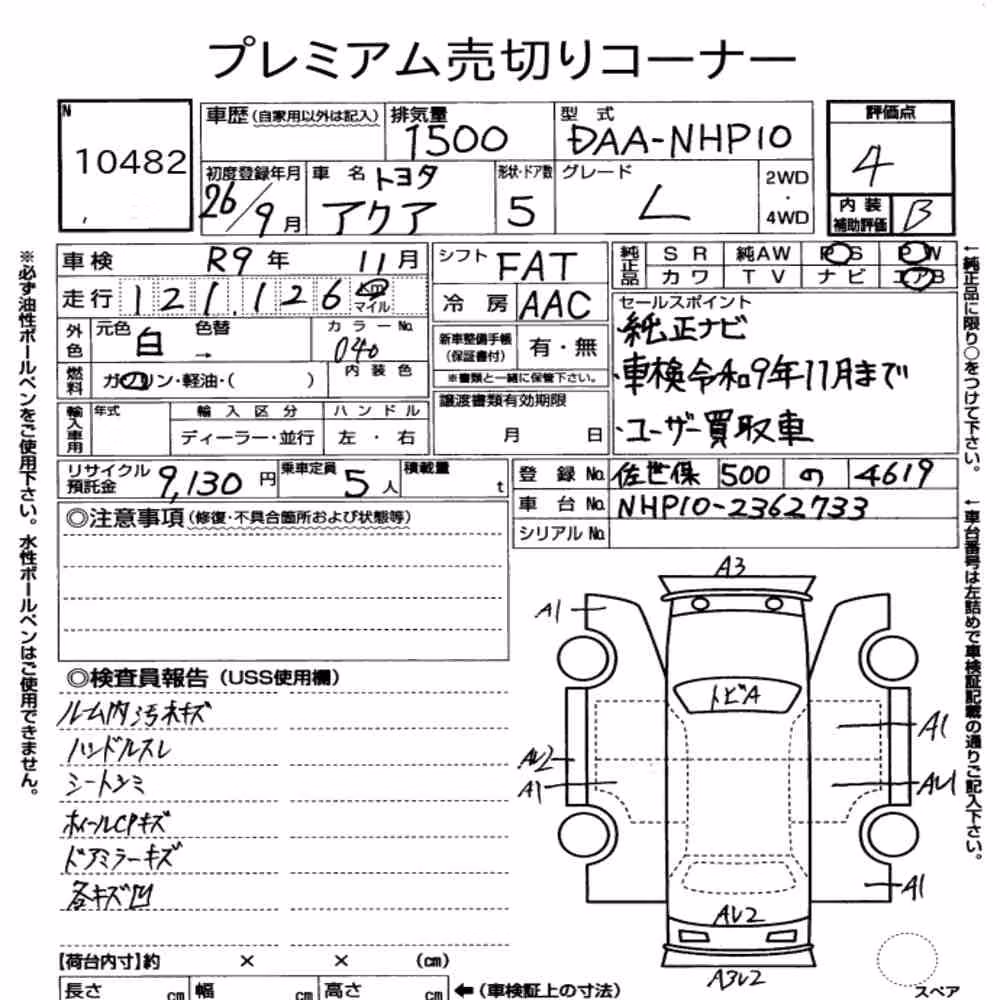 プレミアム売切りコーナー
N
10482
車歴(自家用以外は記入)
排気量
1500
型式
DAA-NHP10
評価点
4
初度登録年月
26/9月
車名
トヨタ
アクア
形状・ドア数
5
グレード
L
2WD
・
4WD
内装
補助評価
B
車検 R9年 11月
シフト FAT
純正品
SR 純AW PS PW
カワ TV ナビ エアB
走行 121,126 km
マイル
冷房 AAC
セールスポイント
純正ナビ
・車検令和9年11月まで
・ユーザー買取車
外色
元色 白 色替 →
カラーNo.
040
新車整備手帳
(保証書付)
有・無
※書類と一緒に保管下さい。
燃料
ガソリン・軽油・( )
内装色
輸入車用
年式
輸入区分
ディーラー・並行
ハンドル
左・右
譲渡書類有効期限
月 日
リサイクル
預託金
9,130円
乗車定員
5人
積載量
t
登録No. 佐世保 500 の 4619
車台No. NHP10-2362733
シリアルNo.
◎注意事項(修復・不具合箇所および状態等)
◎検査員報告(USS使用欄)
ルーム内汚れキズ
ハンドルスレ
シートシミ
ホイールCPキズ
ドアミラーキズ
各キズ凹
A3
A1
トビA
A1
AU2
A1
AU1
A1
AU2
A3U2
スペア
【荷台内寸】約 × × (cm)
長さ cm 幅 cm 高さ cm ←(車検証上の寸法)
※必ず油性ボールペンをご使用下さい。水性ボールペンはご使用できません。
←純正品に限り○をつけて下さい。
←車台番号は左詰めで車検証記載の通りご記入下さい。